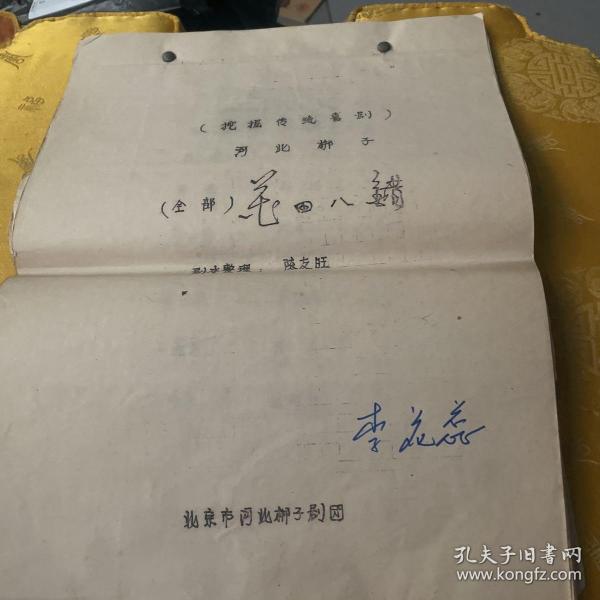 (挖掘传统喜剧)
河北梆子
(全部)花田八错
剧本整理:陈友旺
李花蕊
北京市河北梆子剧团
孔夫子旧书网
www.kongfz.com